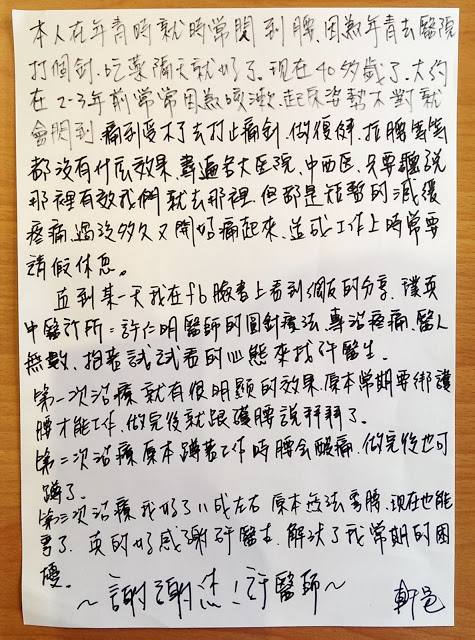 本人在年青時就時常閃到腰、因為年青去醫院
打個針、吃藥隔天就好了。現在40多歲了、大約
在2-3年前常常因為咳漱、起床姿勢不對就
會閃到痛到受不了去打止痛針、做復健、拉腰等等
都沒有什麼效果、尋遍各大医院、中西医、只要聽說
那裡有效我們就去那裡、但都是短暫的減緩
疼痛、過沒多久又開始痛起來、造成工作上時常要
請假休息。
直到某一天我在fb臉書上看到網友的分享、璞真
中醫診所:許仁明醫師的圓針療法、專治疼痛、醫人
無數、抱著試試看的心態來找許醫生。
第一次治療就有很明顯的效果、原本常期要綁護
腰才能工作、做完後就跟護腰說拜拜了。
第二次治療原本蹲著工作時腰会酸痛、做完後也可
蹲了。
第三次治療我好了八成左右原本無法彎腰、現在也能
彎了、真的好感謝許醫生、解決了我常期的困
擾。
~謝謝您!許醫師~
軒邑